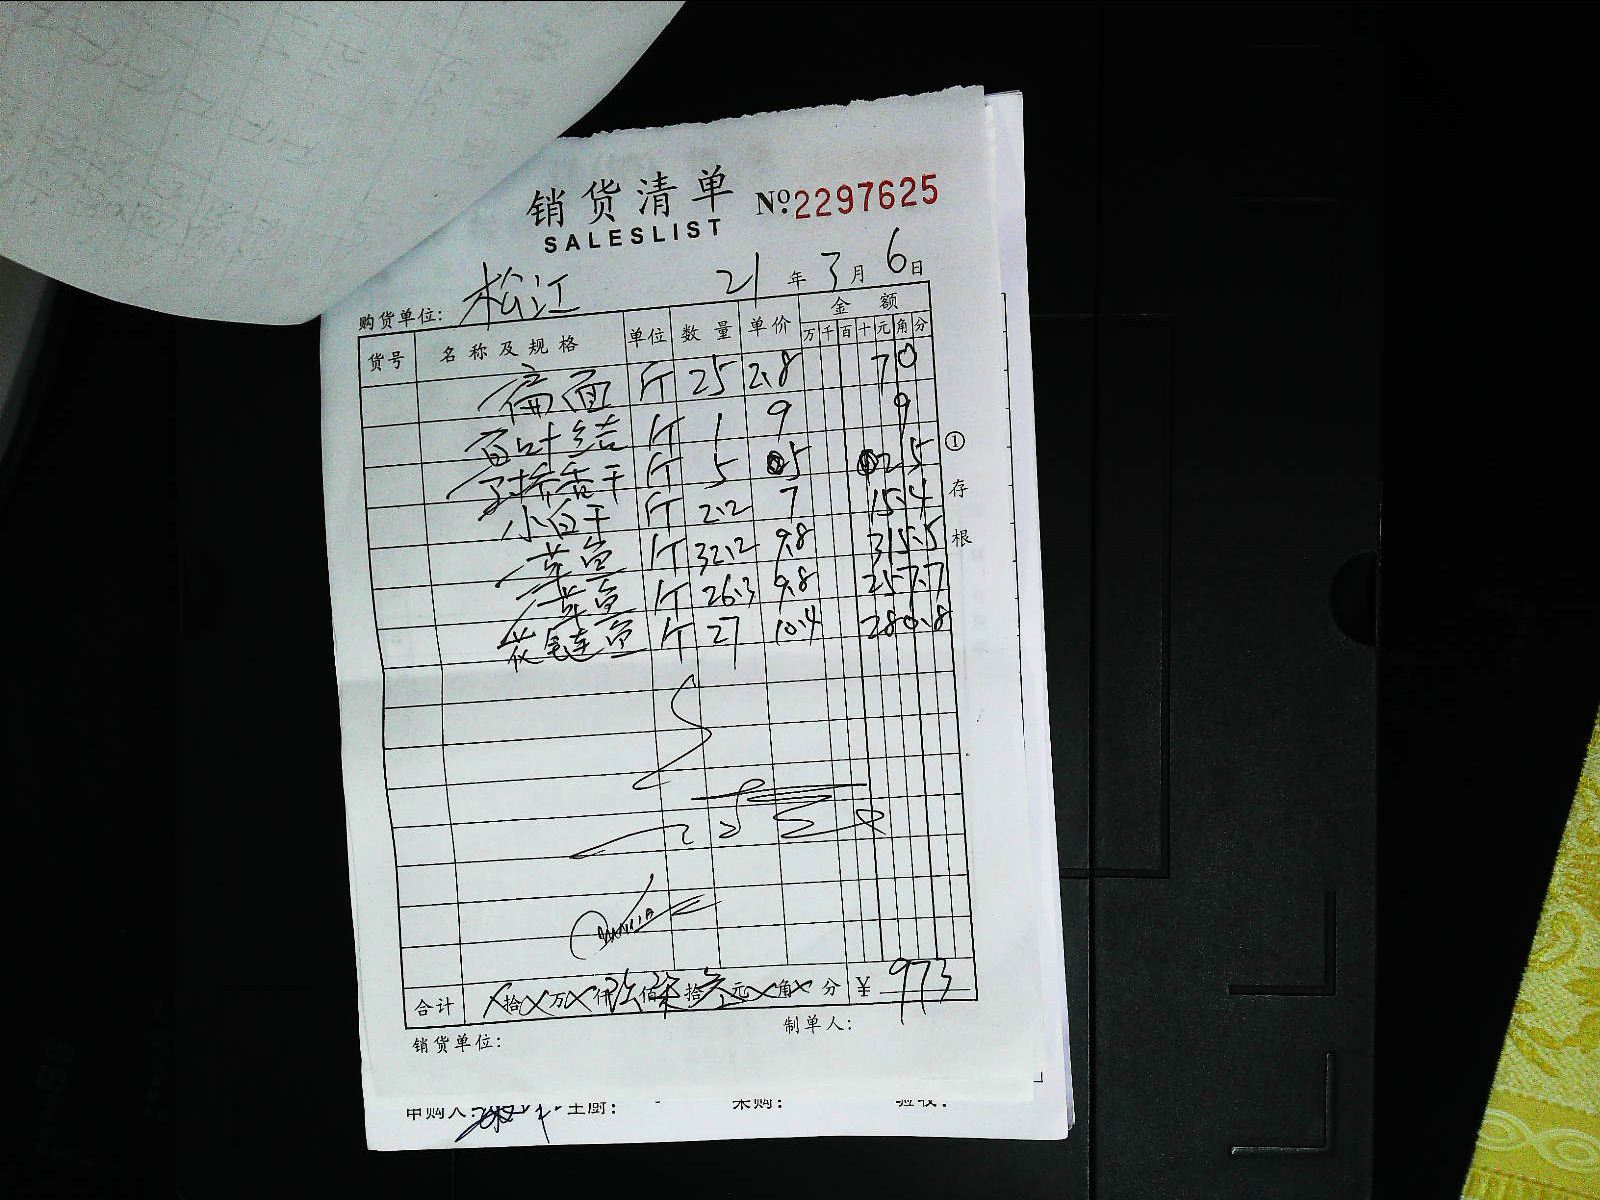 销货清单 №2297625
SALESLIST
购货单位: 松江 21年3月6日
货号 名称及规格 单位 数量 单价 金额
万 千 百 十 元 角 分
扁面 斤 25 2.8 70
百叶结 斤 1 9 9
香干 斤 5 5 25
小白干 斤 2.2 7 15.4
草鱼 斤 32.2 9.8 315.5
草鱼 斤 26.3 9.8 257.7
花毛连鱼 斤 27 10.4 280.8
① 存根
合计 拾 万 仟 玖 佰 柒 拾 叁 元 角 分 ¥ 973
制单人:
销货单位:
申购人: 主厨: 采购: 验收: